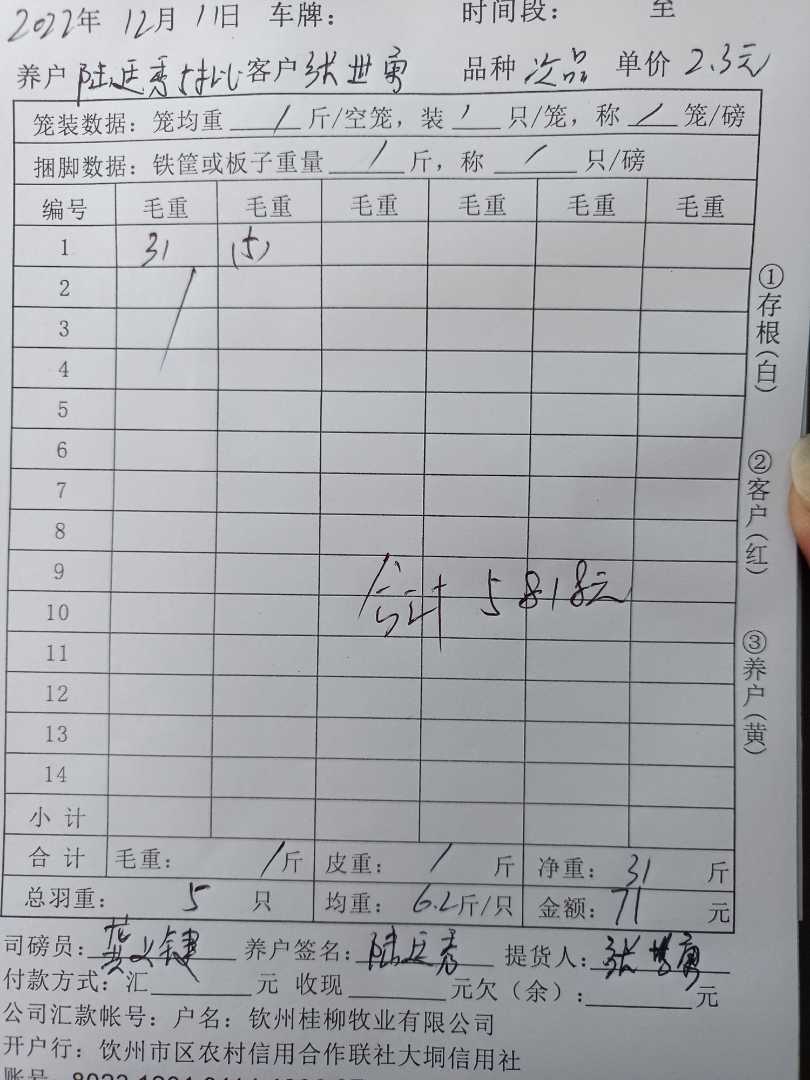 2022年 12月 11日 车牌： 时间段： 至
养户 陆廷秀 客户 张世勇 品种 次品 单价 2.3元
笼装数据：笼均重 / 斤/空笼，装 / 只/笼，称 / 笼/磅
捆脚数据：铁筐或板子重量 / 斤，称 / 只/磅
编号 毛重 毛重 毛重 毛重 毛重 毛重
1 31 (5)
2
3
4
5
6
7
8
9
合计 5818元
10
11
12
13
14
小计
合计 毛重： / 斤 皮重： / 斤 净重： 31 斤
总羽重： 5 只 均重： 6.2斤/只 金额： 71 元
司磅员： 养户签名：陆廷秀 提货人：张世勇
付款方式：汇 元 收现 元欠（余）： 元
公司汇款帐号：户名：钦州桂柳牧业有限公司
开户行：钦州市区农村信用合作联社大垌信用社
①存根(白)
②客户(红)
③养户(黄)